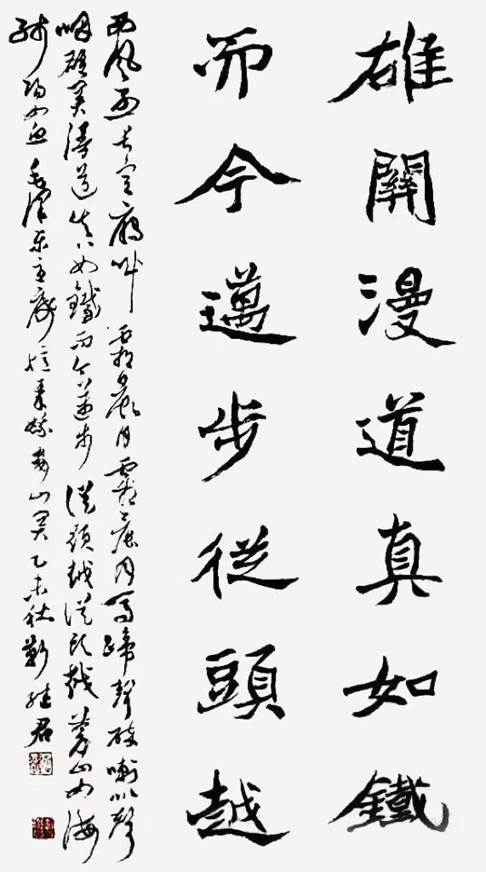 雄關漫道真如鐵
而今邁步從頭越
西風烈長空雁叫霜晨月霜晨月馬蹄聲碎喇叭聲
咽雄關漫道真如鐵而今邁步從頭越從頭越蒼山如海
殘陽如血毛澤東主席憶秦娥婁山關乙未秋靳君